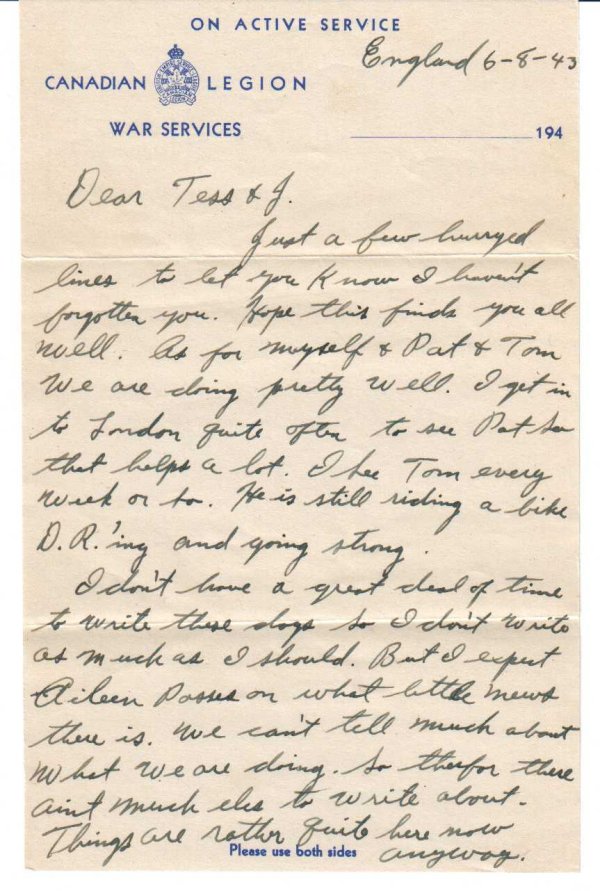 ON ACTIVE SERVICE
England 6-8-43
CANADIAN LEGION
WAR SERVICES
194
Dear Tess & J.
Just a few hurryed
lines to let you know I haven't
forgotten you. Hope this finds you all
well. As for myself & Pat & Tom
We are doing pretty well. I get in
to London quite often to see Pat so
that helps a lot. I see Tom every
week or so. He is still riding a bike
D.R.'ing and going strong.
I don't have a great deal of time
to write these days so I don't write
as much as I should. But I expect
Aileen Passes on what little news
there is. We can't tell much about
What We are doing. So therfor there
aint much els to write about.
Things are rather quite here now
anyway.
Please use both sides